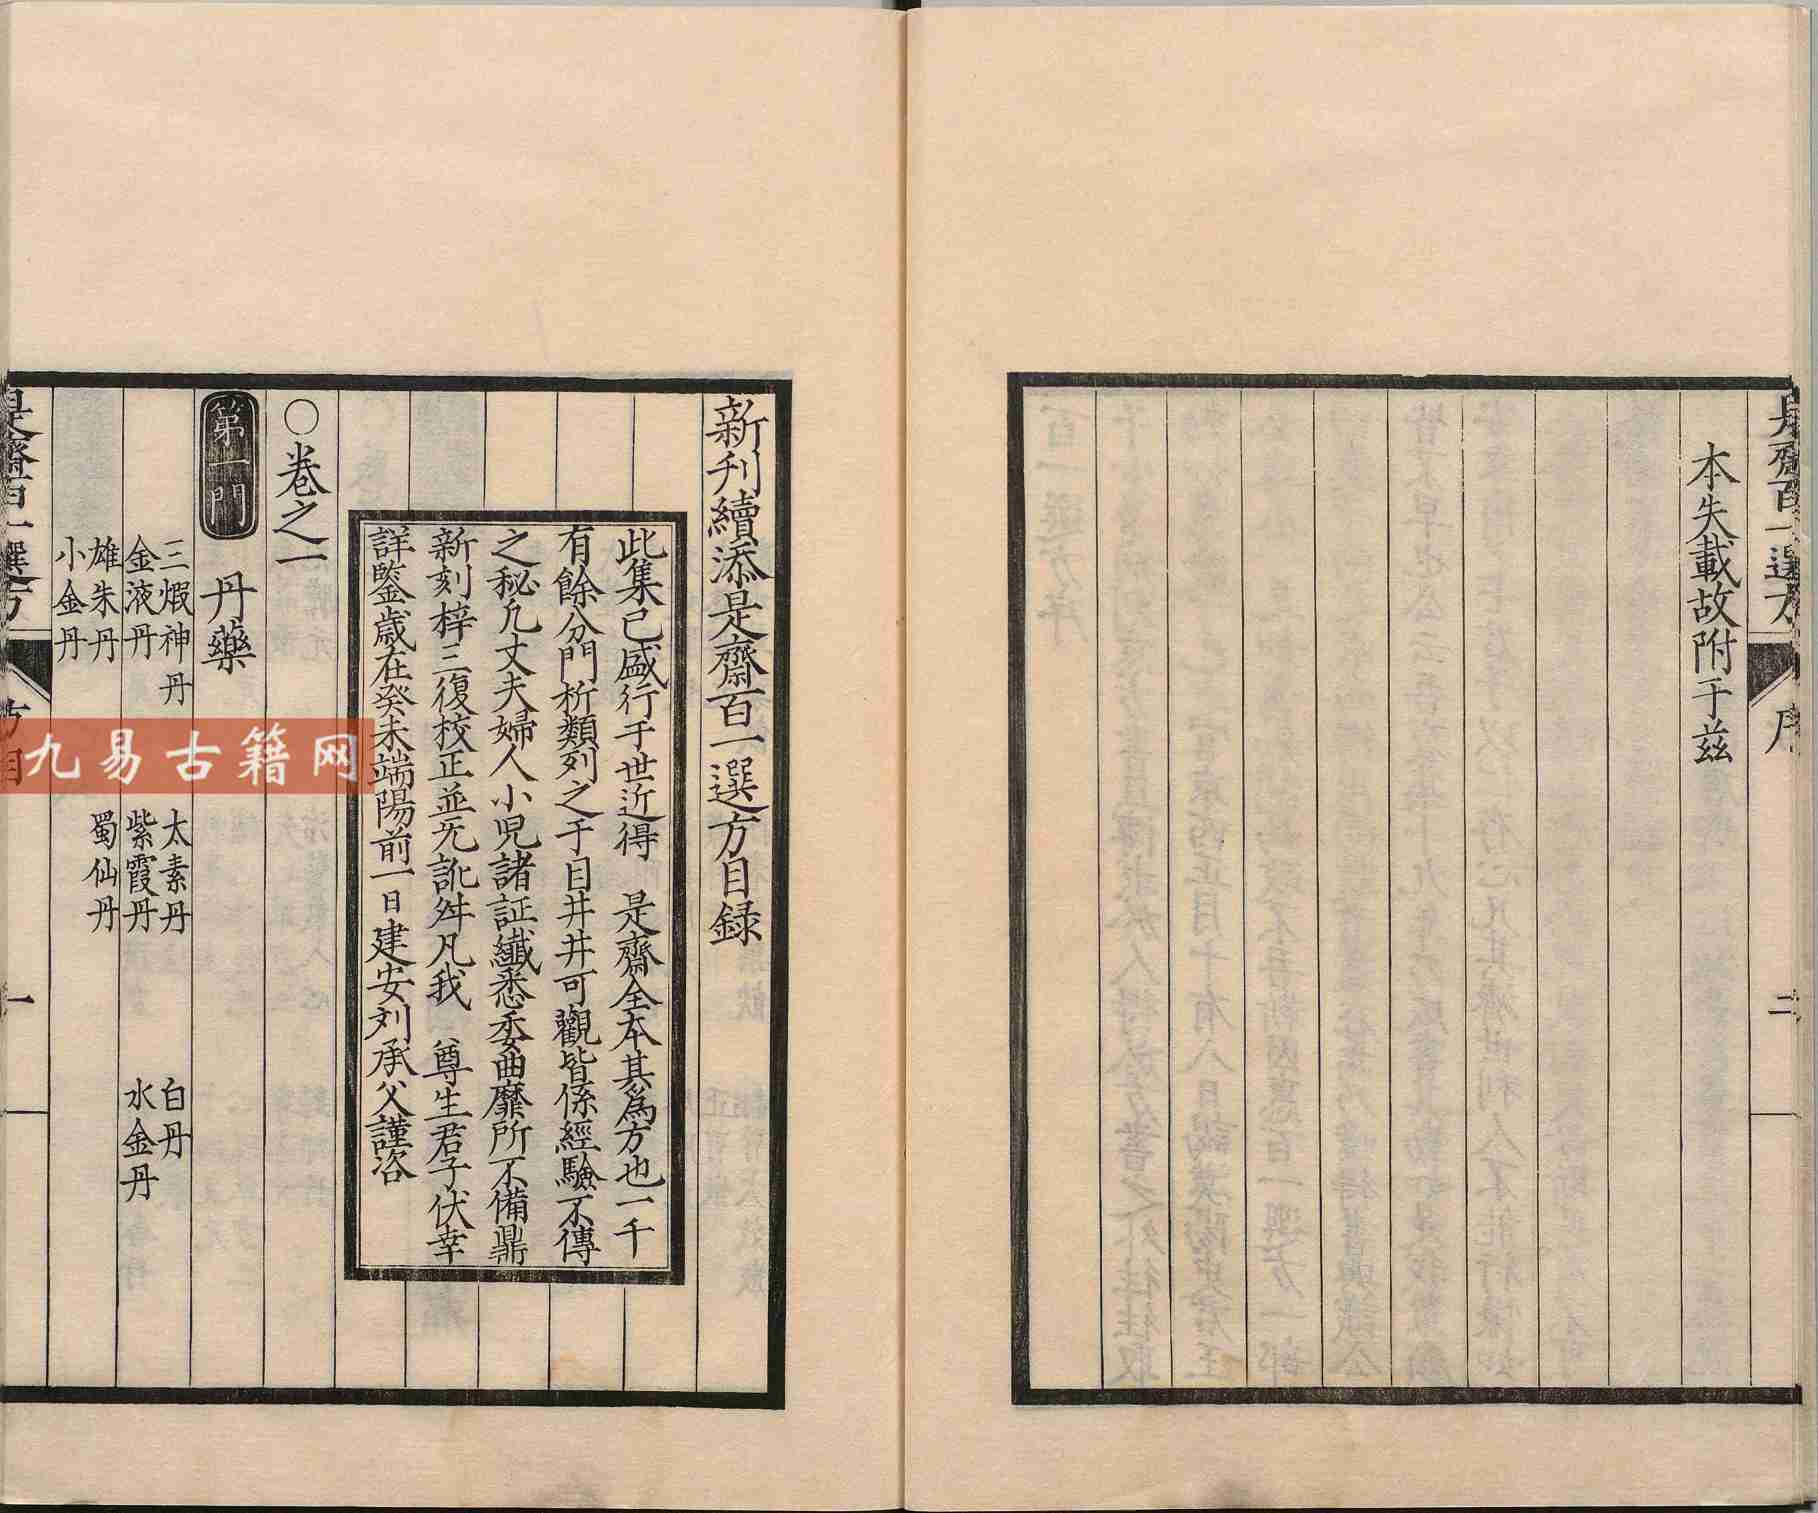 是齋百一選方
序
二
本失載故附于茲
新刋續添是齋百一選方目録
此集已盛行于世近得　是齋全本其爲方也一千
有餘分門析類列之于目井井可觀皆係經驗不傳
之秘凢丈夫婦人小児諸証纖悉委曲靡所不備鼎
新刻梓三復校正並旡訛舛凡我　尊生君子伏幸
詳鑒歳在癸未端陽前一日建安刘承父謹咨
○卷之一
第一門　丹藥
三煆神丹　太素丹　白丹
金液丹　紫霞丹　水金丹
雄朱丹　蜀仙丹
小金丹
是齋百一選方
一
九易古籍网